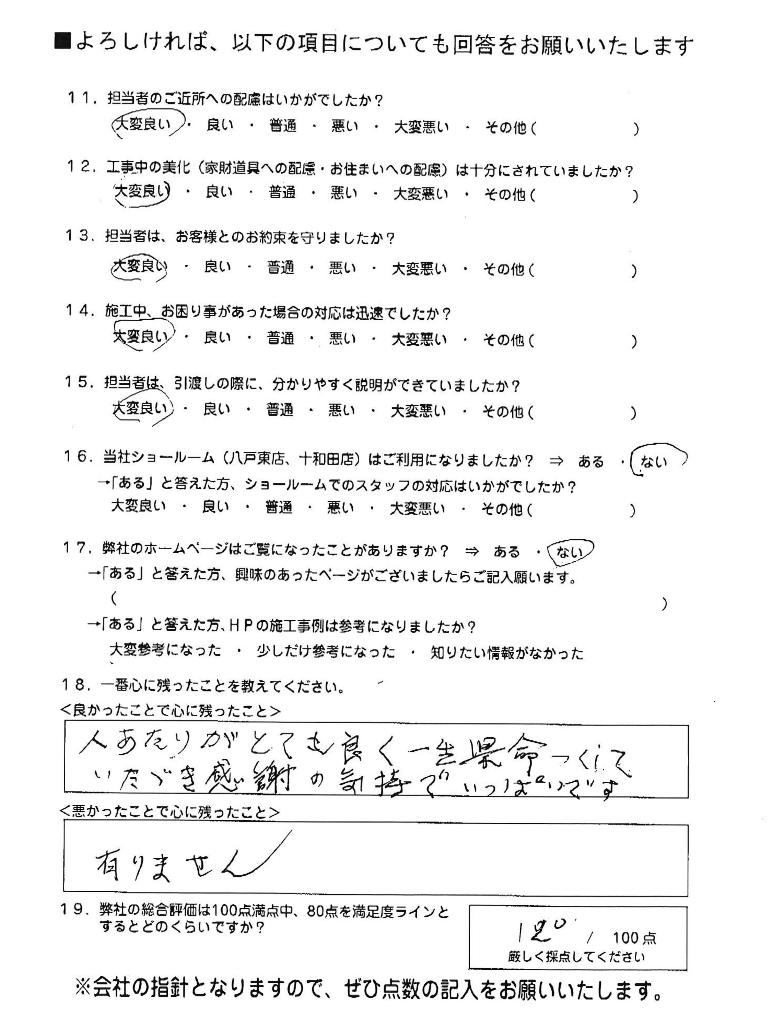 ■よろしければ、以下の項目についても回答をお願いいたします
11．担当者のご近所への配慮はいかがでしたか？
大変良い ・ 良い ・ 普通 ・ 悪い ・ 大変悪い ・ その他（ ）
12．工事中の美化（家財道具への配慮・お住まいへの配慮）は十分にされていましたか？
大変良い ・ 良い ・ 普通 ・ 悪い ・ 大変悪い ・ その他（ ）
13．担当者は、お客様とのお約束を守りましたか？
大変良い ・ 良い ・ 普通 ・ 悪い ・ 大変悪い ・ その他（ ）
14．施工中、お困り事があった場合の対応は迅速でしたか？
大変良い ・ 良い ・ 普通 ・ 悪い ・ 大変悪い ・ その他（ ）
15．担当者は、引渡しの際に、分かりやすく説明ができていましたか？
大変良い ・ 良い ・ 普通 ・ 悪い ・ 大変悪い ・ その他（ ）
16．当社ショールーム（八戸東店、十和田店）はご利用になりましたか？ ⇒ ある ・ ない
→「ある」と答えた方、ショールームでのスタッフの対応はいかがでしたか？
大変良い ・ 良い ・ 普通 ・ 悪い ・ 大変悪い ・ その他（ ）
17．弊社のホームページはご覧になったことがありますか？ ⇒ ある ・ ない
→「ある」と答えた方、興味のあったページがございましたらご記入願います。
（ ）
→「ある」と答えた方、ＨＰの施工事例は参考になりましたか？
大変参考になった ・ 少しだけ参考になった ・ 知りたい情報がなかった
18．一番心に残ったことを教えてください。
＜良かったことで心に残ったこと＞
人あたりがとても良く一生県命つくして
いただき感謝の気持でいっぱいです
＜悪かったことで心に残ったこと＞
有りません
19．弊社の総合評価は100点満点中、80点を満足度ラインと
するとどのくらいですか？
120 / 100点
厳しく採点してください
※会社の指針となりますので、ぜひ点数の記入をお願いいたします。